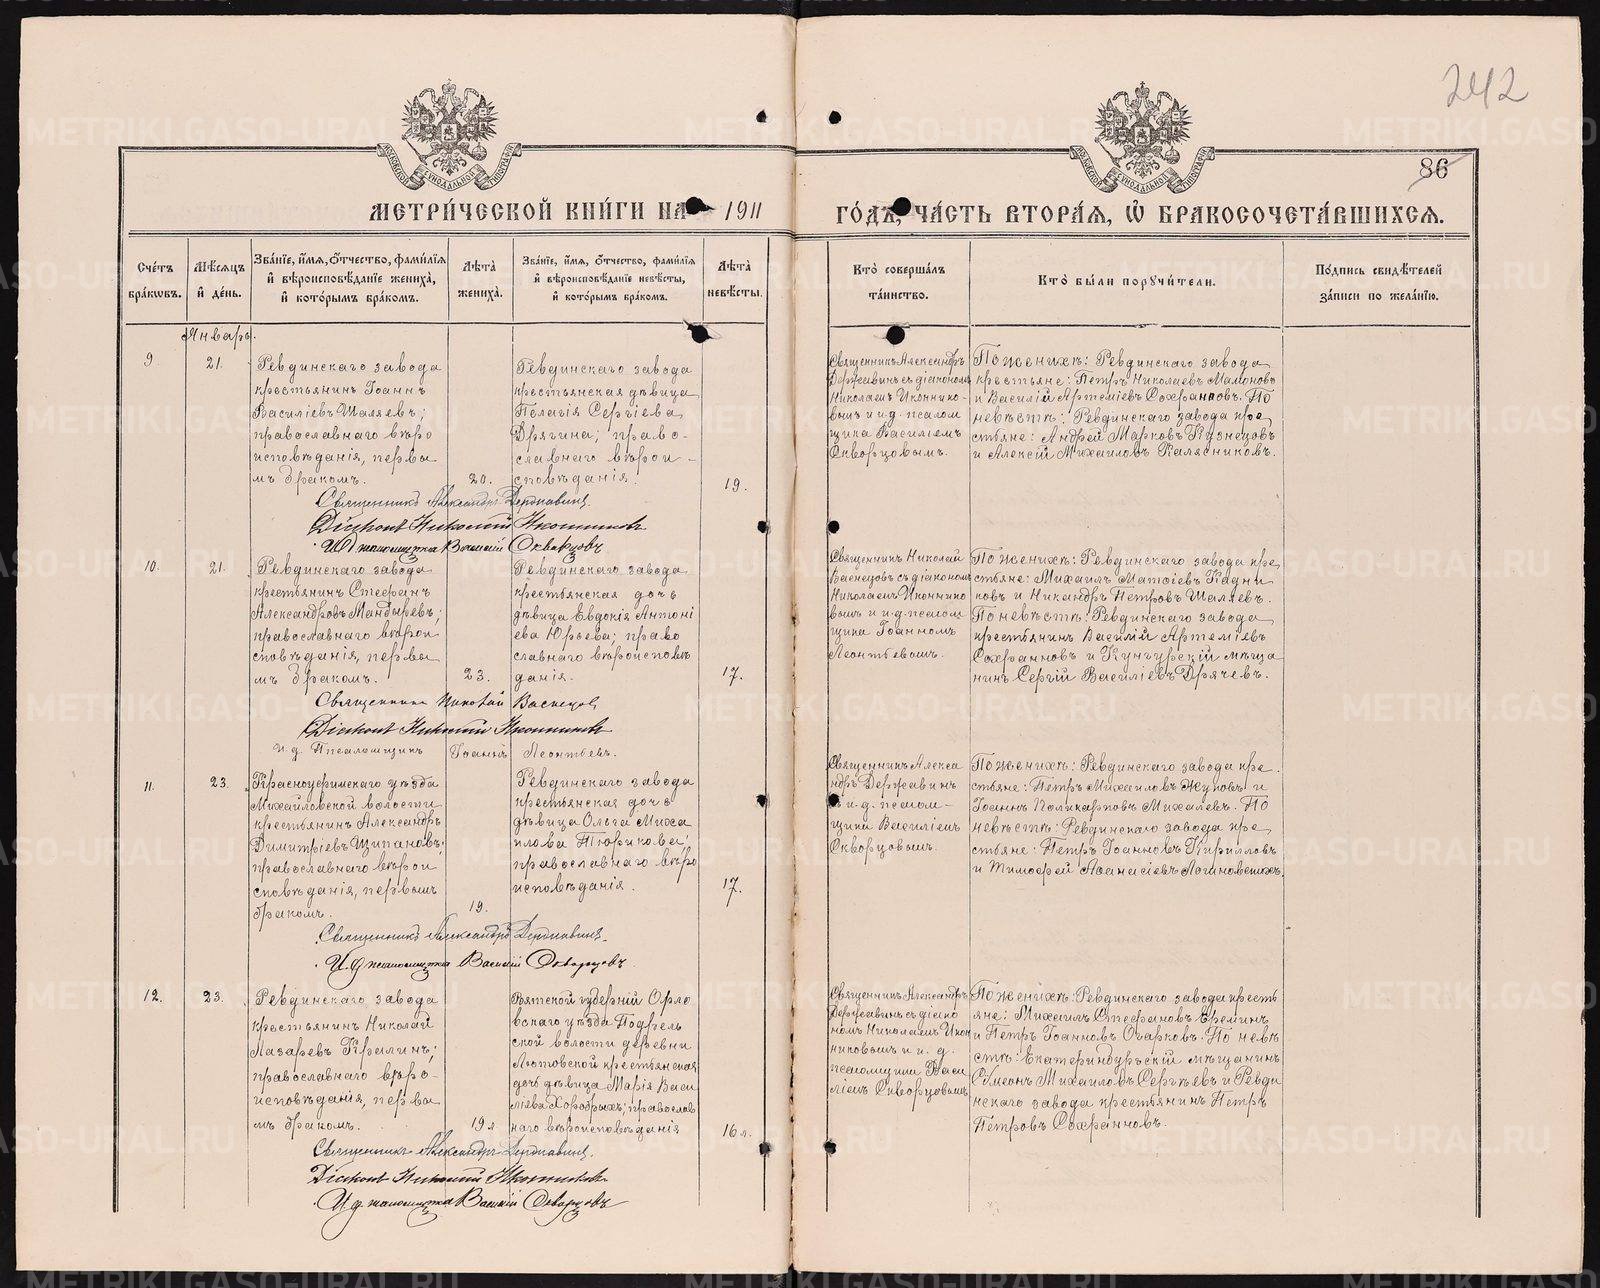 242
86
МЕТРИ́ЧЕСКОЙ КНИ́ГИ НА 1911 ГО́ДЪ, ЧА́СТЬ ВТОРА́Я, Ѡ БРАКОСОЧЕТА́ВШИХСЯ.
Сче́тъ бра́кѡвъ.
Мѣ́сяцъ и́ де́нь.
Зва́нїе, и́мя, ѻ́тчество, фами́лїя и́ вѣроисповѣ́данїе жениха̀, и́ кото́рымъ бра́комъ.
Лѣ́та жениха̀.
Зва́нїе, и́мя, ѻ́тчество, фами́лїя и́ вѣроисповѣ́данїе невѣ́сты, и́ кото́рымъ бра́комъ.
Лѣ́та невѣ́сты.
Кто̀ соверша́лъ та́инство.
Кто̀ бы́ли поручи́тели.
По́дпись свидѣ́телей за́писи по жела́нїю.
Январь.
9
21.
Ревдинскаго завода
крестьянинъ Іоаннъ
Василіевъ Шаляевъ;
православнаго вѣро
исповѣданія, первы
мъ бракомъ.
20.
Ревдинскаго завода
крестьянская дѣвица
Пелагія Сергіева
Дрягина; право-
славнаго вѣрои-
сповѣданія.
19.
Священникъ Александръ
Державинъ съ діакономъ
Николаемъ Иконнико-
вымъ и и.д. псалом
щика Василіемъ
Скворцовымъ.
По женихѣ: Ревдинскаго завода
крестьяне: Петръ Николаевъ Мамоновъ
и Василій Артеміевъ Сохранновъ. По
невѣстѣ: Ревдинскаго завода кре
стьяне: Андрей Марковъ Кузнецовъ
и Алексій Михаиловъ Калясниковъ.
Священникъ Александръ Державинъ.
Діаконъ Николай Иконниковъ
И.д. псаломщика Василій Скворцовъ
10.
21.
Ревдинскаго завода
крестьянинъ Стефанъ
Александровъ Мандыревъ;
православнаго вѣрои
сповѣданія, первы
мъ бракомъ.
23.
Ревдинскаго завода
крестьянская дочь
дѣвица Евдокія Антоні
ева Юрьева; право
славнаго вѣроисповѣ
данія.
17.
Священникъ Николай
Васнецовъ съ діакономъ
Николаемъ Иконнико
вымъ и и.д. псалом
щика Іоанномъ
Леонтьевымъ.
По женихѣ: Ревдинскаго завода кре
стьяне: Михаилъ Матѳіевъ Кадни
ковъ и Никандръ Петровъ Шаляевъ.
По невѣстѣ: Ревдинскаго завода
крестьянинъ Василій Артеміевъ
Сохранновъ и Кунгурскій мѣща
нинъ Сергій Василіевъ Дрячевъ.
Священникъ Николай Васнецовъ
Діаконъ Николай Иконниковъ
И.д. Псаломщикъ Іоаннъ Леонтьевъ.
11.
23.
Красноуфимскаго уѣзда
Михайловской волости
крестьянинъ Александръ
Димитріевъ Щипановъ,
православнаго вѣрои
сповѣданія, первымъ
бракомъ.
19.
Ревдинскаго завода
крестьянская дочь
дѣвица Ольга Миха
илова Тюрикова;
православнаго вѣро
исповѣданія.
17.
Священникъ Алекса
ндръ Державинъ
и и.д. псалом-
щика Василіемъ
Скворцовымъ.
По женихѣ: Ревдинскаго завода кре
стьяне: Петръ Михаиловъ Жуковъ и
Іоаннъ Поликарповъ Михалевъ. По
невѣстѣ: Ревдинскаго завода кре
стьяне: Петръ Іоанновъ Кирилловъ
и Тимофей Аѳанасіевъ Логиновскихъ.
Священникъ Александръ Державинъ.
И.д. псаломщика Василій Скворцовъ
12.
23.
Ревдинскаго завода
крестьянинъ Николай
Лазаревъ Кралинъ;
православнаго вѣро-
исповѣданія, первы
мъ бракомъ.
19 л.
Вятской губерніи Орло
вскаго уѣзда Подрель
ской волости деревни
Лютовской крестьянская
дочь дѣвица Марія Васи
ліева Хоробрыхъ; православ
наго вѣроисповѣданія
16 л.
Священникъ Александръ
Державинъ съ діако
номъ Николаемъ Икон
никовымъ и и. д.
псаломщика Васи
ліемъ Скворцовымъ
По женихѣ: Ревдинскаго завода кресть
яне: Михаилъ Стефановъ Ереминъ
и Петръ Іоанновъ Очарковъ. По невѣ
стѣ: Екатеринбургскій мѣщанинъ
Сѵмеонъ Михаиловъ Сергѣевъ и Ревди
нскаго завода крестьянинъ Петръ
Петровъ Сохранновъ.
Священникъ Александръ Державинъ.
Діаконъ Николай Иконниковъ
И.д. псаломщика Василій Скворцовъ
METRIKI.GASO-URAL.RU